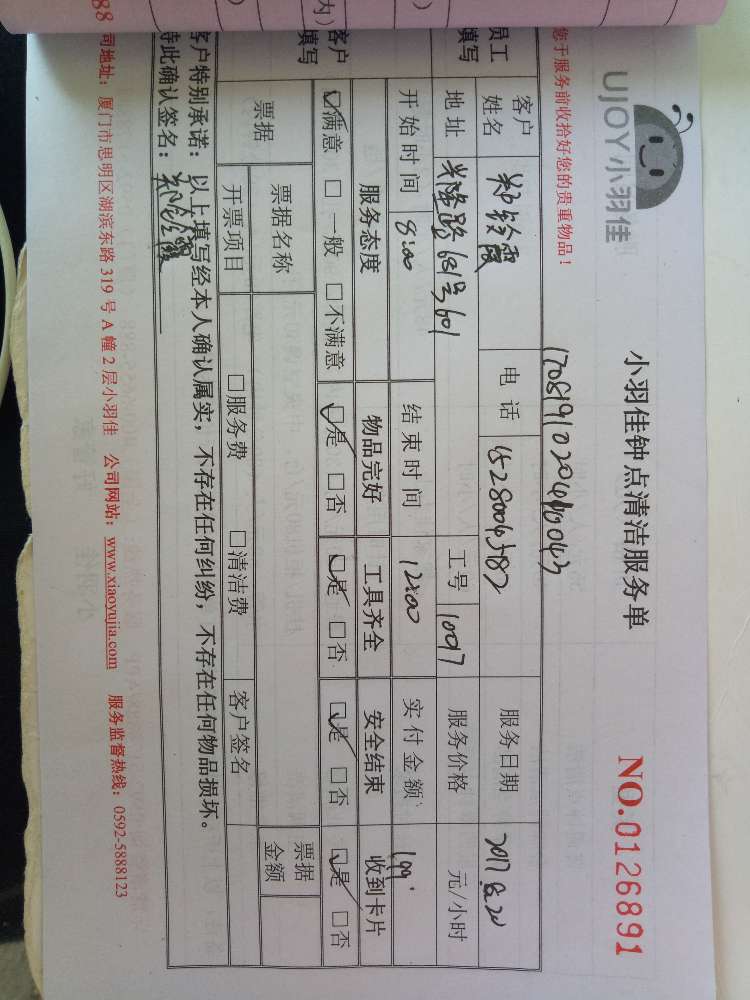 UJOY小羽佳
小羽佳钟点清洁服务单
NO.0126891
您于服务前收拾好您的贵重物品！
员工填写
客户姓名 郑铃霞 电话 15280045782 服务日期 2017.8.20
地址 兴隆路681号601 工号 1097 服务价格 元/小时
开始时间 8:00 结束时间 12:00 实付金额 199
客户填写
服务态度 物品完好 工具齐全 安全结束 收到卡片
☑满意 □一般 □不满意 ☑是 □否 ☑是 □否 ☑是 □否 ☑是 □否
票据 票据名称 票据金额
开票项目 □服务费 □清洁费 客户签名
客户特别承诺：以上填写经本人确认属实，不存在任何纠纷，不存在任何物品损坏。
特此确认签名：郑铃霞
88 司地址：厦门市思明区湖滨东路 319 号 A 幢 2 层小羽佳 公司网站：www.xiaoyujia.com 服务监督热线：0592-5888123